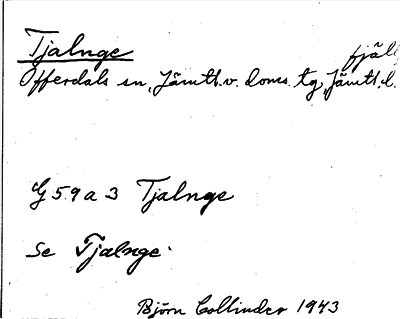 Tjalnge
fjäll
Offerdals sn, Jämtl. v. doms. tg, Jämtl. l.
G 59 a 3 Tjalnge
Se Tjalnge
Björn Collinder 1943